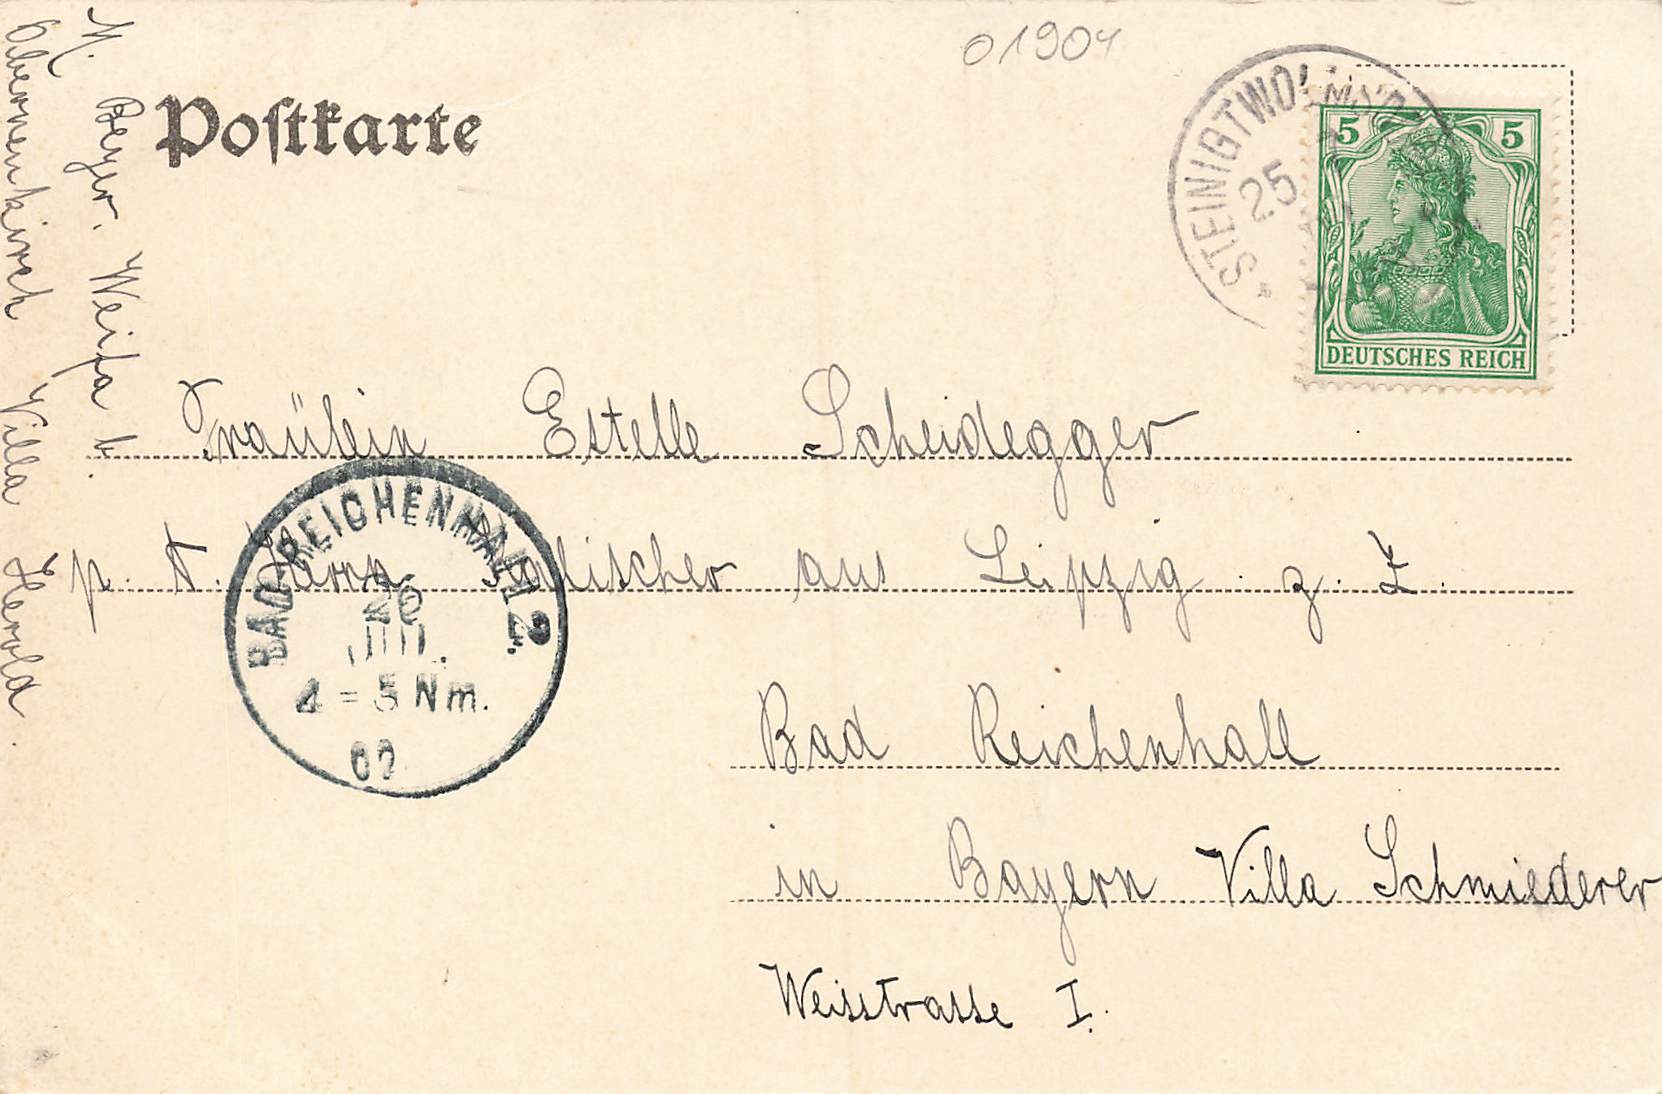 01904
Postkarte
STEINIGTWOLMSDORF
25
5 5
DEUTSCHES REICH
Fräulein Estelle Scheidegger
p. A. Herrn Fischer aus Leipzig z. Z.
Bad Reichenhall
in Bayern Villa Schmiederer
Weisstrasse I.
BAD REICHENHALL 2.
26
JUL.
4-5 Nm.
07
Beyer. Weifa b.
Obernenkirch Villa Herold.